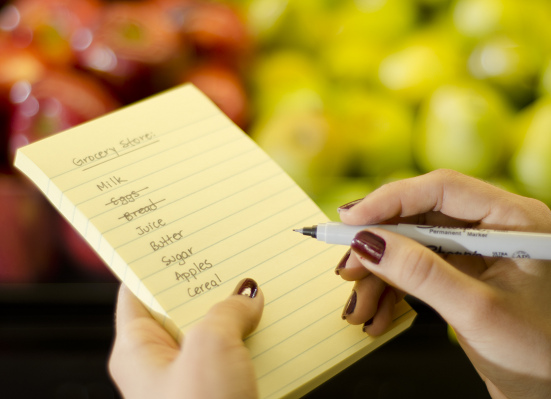 Grocery Store:
Milk
Eggs
Bread
Juice
Butter
Sugar
Apples
Cereal
Permanent Marker